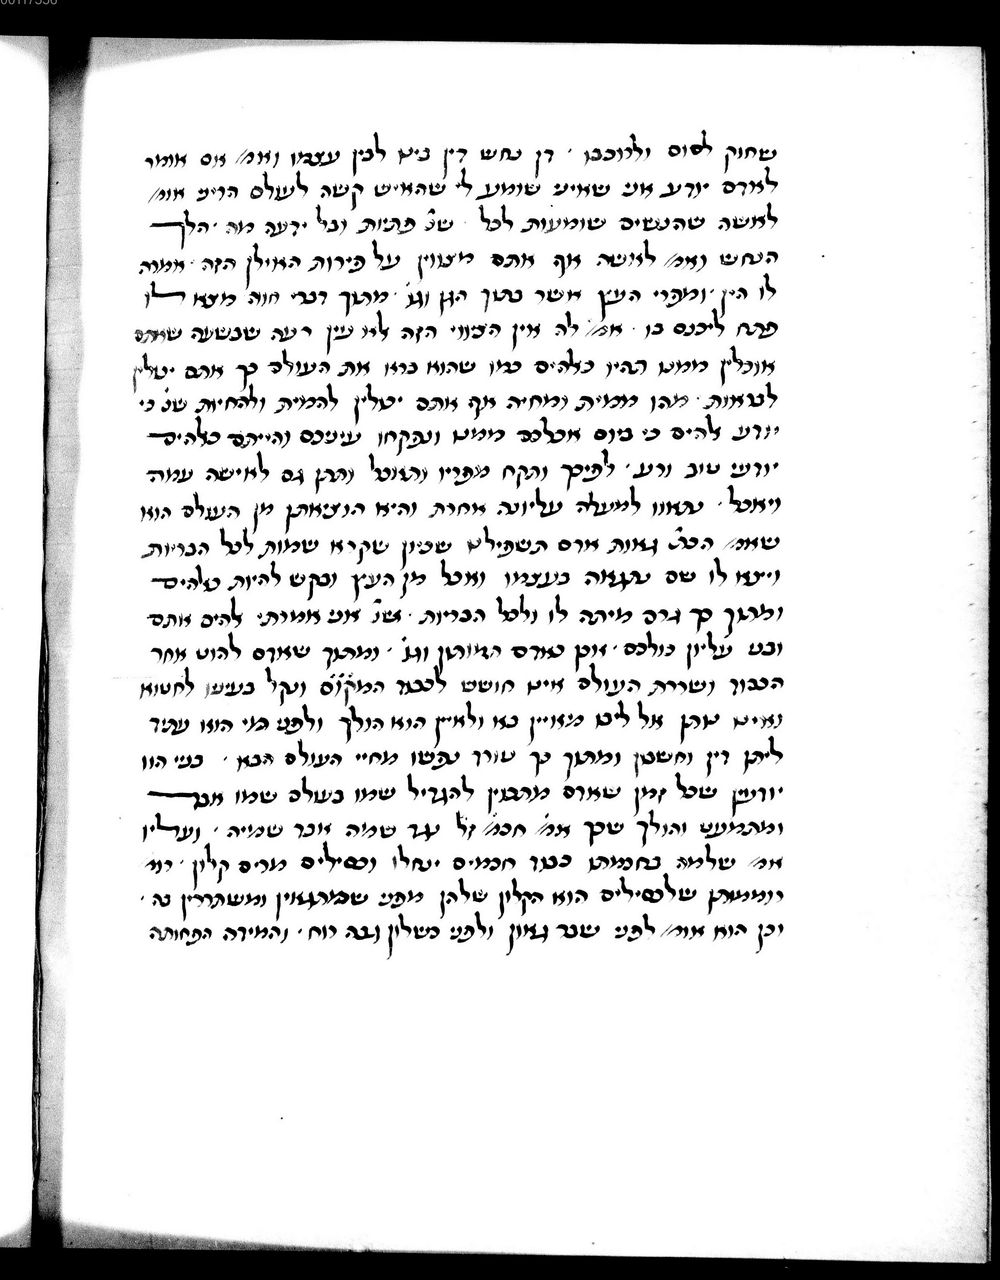 שחוק לסוס ולרוכבו · דן נחש דין בינו לבין עצמו ואמ׳ אם אומר
לאדם יודע אני שאינו שומע לי שהאיש קשה לעולם הריני אומ׳
לאשה שהנשים שומעות לכל · שנ׳ פתיות ובל ידעה מה · הלך
הנחש ואמ׳ לאשה אף אתם מצווין על פירות האילן הזה · אמרה
לו הין · ומפרי העץ אשר בתוך הגן וגו׳ · מתוך דברי חוה מצא לו
פתח ליכנס בו · אמ׳ לה אין הציווי הזה אלא עין רעה שבשעה שאתם
אוכלין ממנו תהיו כאלהים כמו שהוא ברא את העולם כך אתם יכולין
לבראות · מהו ממית ומחיה אף אתם יכולין להמית ולהחיות שנ׳ כי
יודע אלהים כי ביום אכלכם ממנו ונפקחו עיניכם והייתם כאלהים
יודעי טוב ורע · לפיכך ותקח מפריו ותאכל ותתן גם לאישה עמה
ויאכל · נתאוו למעלה עליונה אחרת והיא הוצאתן מן העולם הוא
שאמ׳ הכת׳ גאות אדם תשפילנו שכיון שקרא שמות לכל הבריות
ויצא לו שם נתגאה בעצמו ואכל מן העץ ובקש להיות כאלהים
ומתוך כך גרם מיתה לו ולכל הבריות · שנ׳ אני אמרתי אלהים אתם
ובני עליון כולכם · אכן כאדם תמותון וגו׳ · ומתוך שאדם להוט אחר
הכבוד ושררת העולם אינו חושש לכבוד המקום ונקל בעיניו לחטוא
ואינו נותן אל לבו מאויין בא ולאיין הוא הולך ולפני מי הוא עתיד
ליתן דין וחשבון ומתוך כך טורד נפשו מחיי העולם הבא · בני הוו
יודעין שכל זמן שאדם מתכוין להגדיל שמו בעולם שמו אבד
ומתמעט והולך שכך אמ׳ חכמ׳ ז״ל נגד שמיה אבד שמיה · ועליו
אמ׳ שלמה בחכמתו כבוד חכמים ינחלו וכסילים מרים קלון · רומ׳
רוממותן שלכסילים הוא הקלון שלהן מפני שמתגאין ומשתררין בה ·
וכן הוא אומ׳ לפני שבר גאון ולפני כשלון גבה רוח · והמידה הפחותה